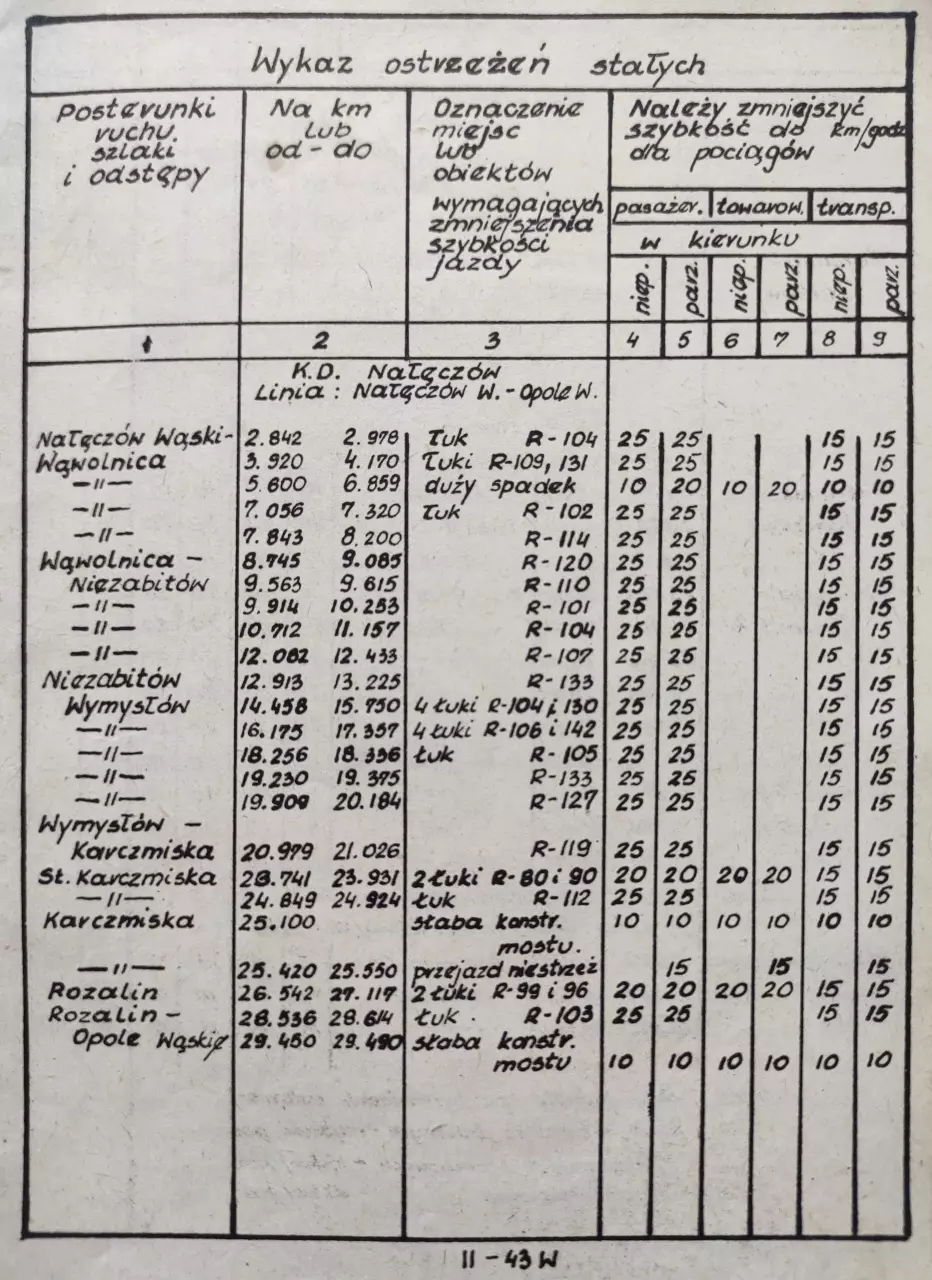 Wykaz ostrzeżeń stałych
posterunki ruchu, szlaki i odstępy
Na km lub od - do
Oznaczenie miejsc lub obiektów wymagających zmniejszenia szybkości jazdy
Należy zmniejszyć szybkość do km/godz dla pociągów
pasażer. towarow. transp.
w kierunku
niep. parz. niep. parz. niep. parz.
1 2 3 4 5 6 7 8 9
K.D. Nałęczów
Linia : Nałęczów W. - Opole W.
Nałęczów Wąski- 2.842 2.978 Łuk R-104 25 25 15 15
Wąwolnica 3.920 4.170 Łuki R-109, 131 25 25 15 15
—〃— 5.600 6.859 duży spadek 10 20 10 20 10 10
—〃— 7.056 7.320 Łuk R-102 25 25 15 15
—〃— 7.843 8.200 R-114 25 25 15 15
Wąwolnica — 8.745 9.085 R-120 25 25 15 15
Niezabitów 9.563 9.615 R-110 25 25 15 15
—〃— 9.914 10.253 R-101 25 25 15 15
—〃— 10.712 11.157 R-104 25 25 15 15
—〃— 12.082 12.433 R-107 25 25 15 15
Niezabitów 12.913 13.225 R-133 25 25 15 15
Wymysłów 14.458 15.750 4 łuki R-104 i 130 25 25 15 15
—〃— 16.175 17.357 4 łuki R-106 i 142 25 25 15 15
—〃— 18.256 18.336 łuk R-105 25 25 15 15
—〃— 19.230 19.375 R-133 25 25 15 15
—〃— 19.909 20.184 R-127 25 25 15 15
Wymysłów —
Karczmiska 20.979 21.026 R-119 25 25 15 15
St. Karczmiska 23.741 23.931 2 łuki R-80 i 90 20 20 20 20 15 15
—〃— 24.849 24.924 łuk R-112 25 25 15 15
Karczmiska 25.100 słaba konstr. 10 10 10 10 10 10
mostu.
—〃— 25.420 25.550 przejazd niestrzeż 15 15 15
Rozalin 26.542 27.117 2 łuki R-99 i 96 20 20 20 20 15 15
Rozalin — 28.536 28.614 łuk R-103 25 25 15 15
Opole Wąskie 29.450 29.490 słaba konstr.
mostu 10 10 10 10 10 10
II - 43 W